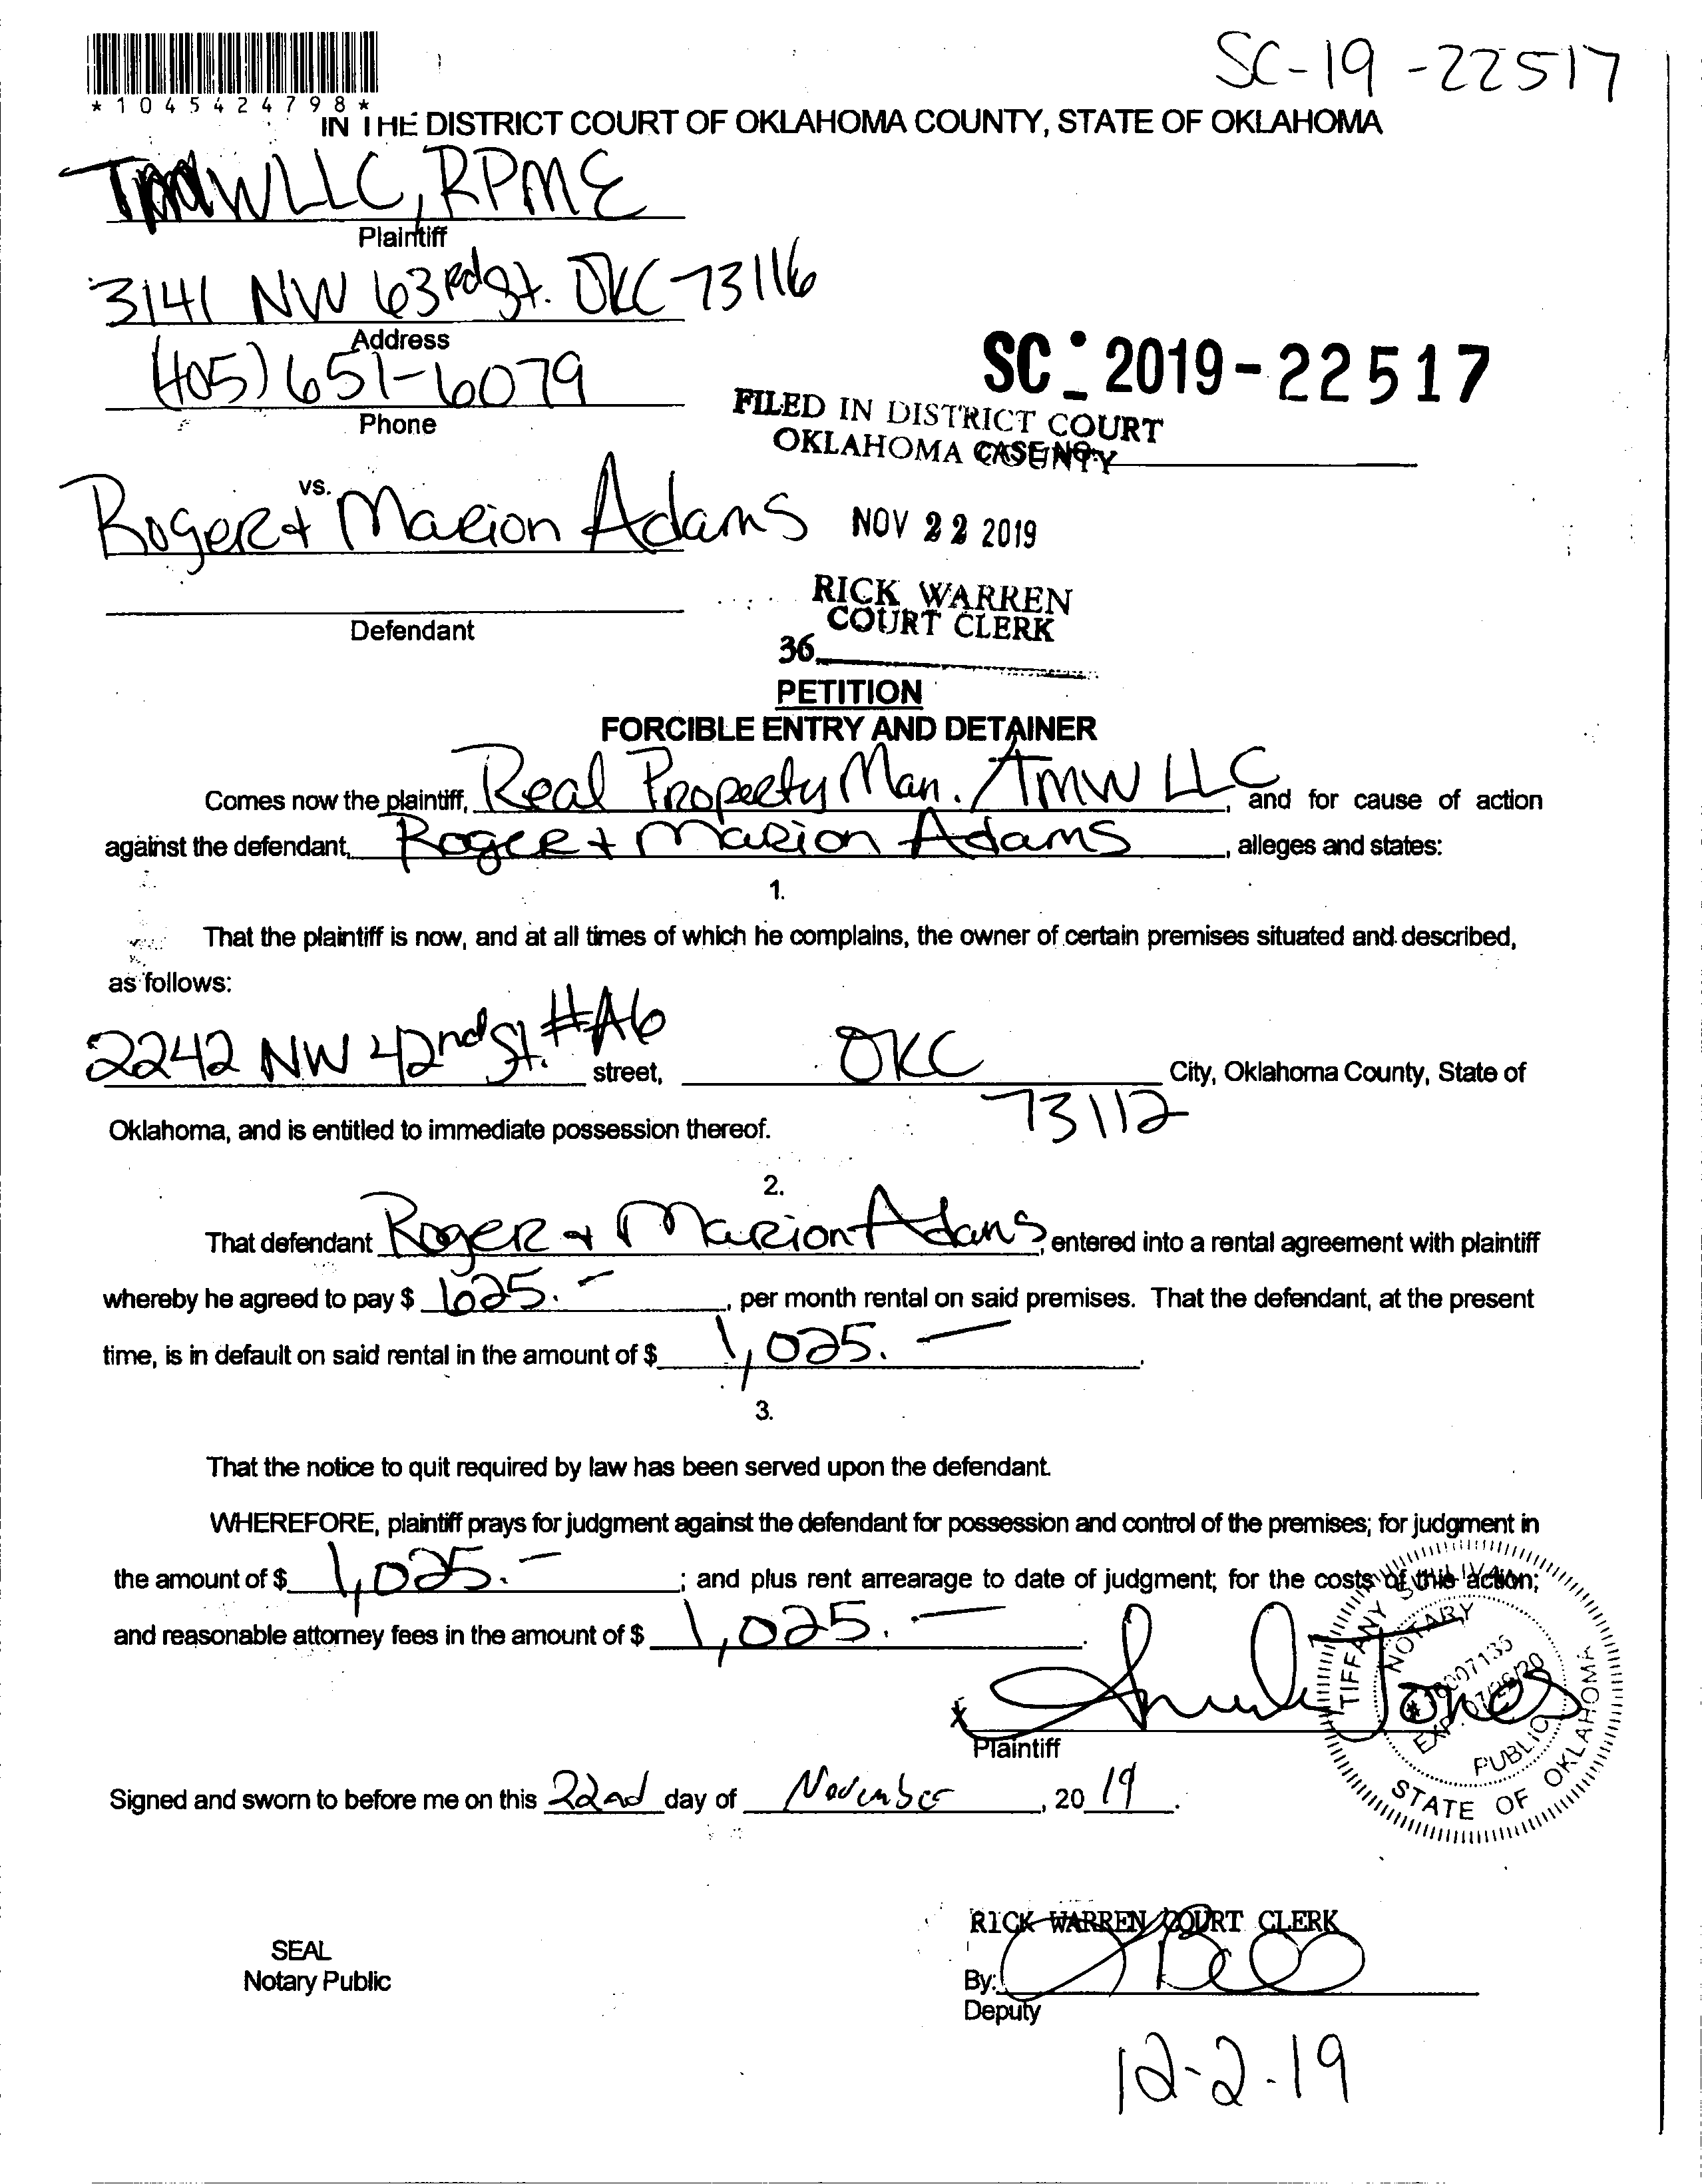 SC-19-22517
*1045424798*
IN THE DISTRICT COURT OF OKLAHOMA COUNTY, STATE OF OKLAHOMA
TMW LLC, RPME
Plaintiff
3141 NW 63Rd St. OKC 73116
Address
(405) 651-6079
Phone
SC - 2019-22517
FILED IN DISTRICT COURT
OKLAHOMA COUNTY
CASE NO.
vs.
Roger + Marion Adams
NOV 22 2019
RICK WARREN
COURT CLERK
Defendant
36
PETITION
FORCIBLE ENTRY AND DETAINER
Comes now the plaintiff, Real Property Man. / TMW LLC, and for cause of action
against the defendant, Roger + Marion Adams, alleges and states:
1.
That the plaintiff is now, and at all times of which he complains, the owner of certain premises situated and described,
as follows:
2242 NW 42nd St. #A6 street, OKC City, Oklahoma County, State of
73112
Oklahoma, and is entitled to immediate possession thereof.
2.
That defendant Roger + Marion Adams, entered into a rental agreement with plaintiff
whereby he agreed to pay $ 625.-, per month rental on said premises. That the defendant, at the present
time, is in default on said rental in the amount of $ 1,025.-.
3.
That the notice to quit required by law has been served upon the defendant.
WHEREFORE, plaintiff prays for judgment against the defendant for possession and control of the premises; for judgment in
the amount of $ 1,025.-; and plus rent arrearage to date of judgment; for the costs of this action;
and reasonable attorney fees in the amount of $ 1,025.-.
Jones
x
Plaintiff
TIFFANY SULLIVAN
NOTARY
EXP. 07/26/20
PUBLIC
STATE OF OKLAHOMA
Signed and sworn to before me on this 22nd day of November, 2019.
RICK WARREN COURT CLERK
SEAL
Notary Public
By:
Deputy
12-2-19